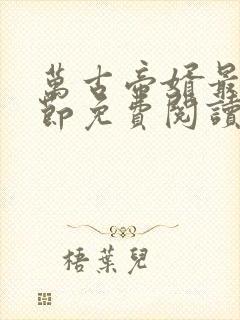 萬古帝婿最
節免費閱讀
梧葉兒